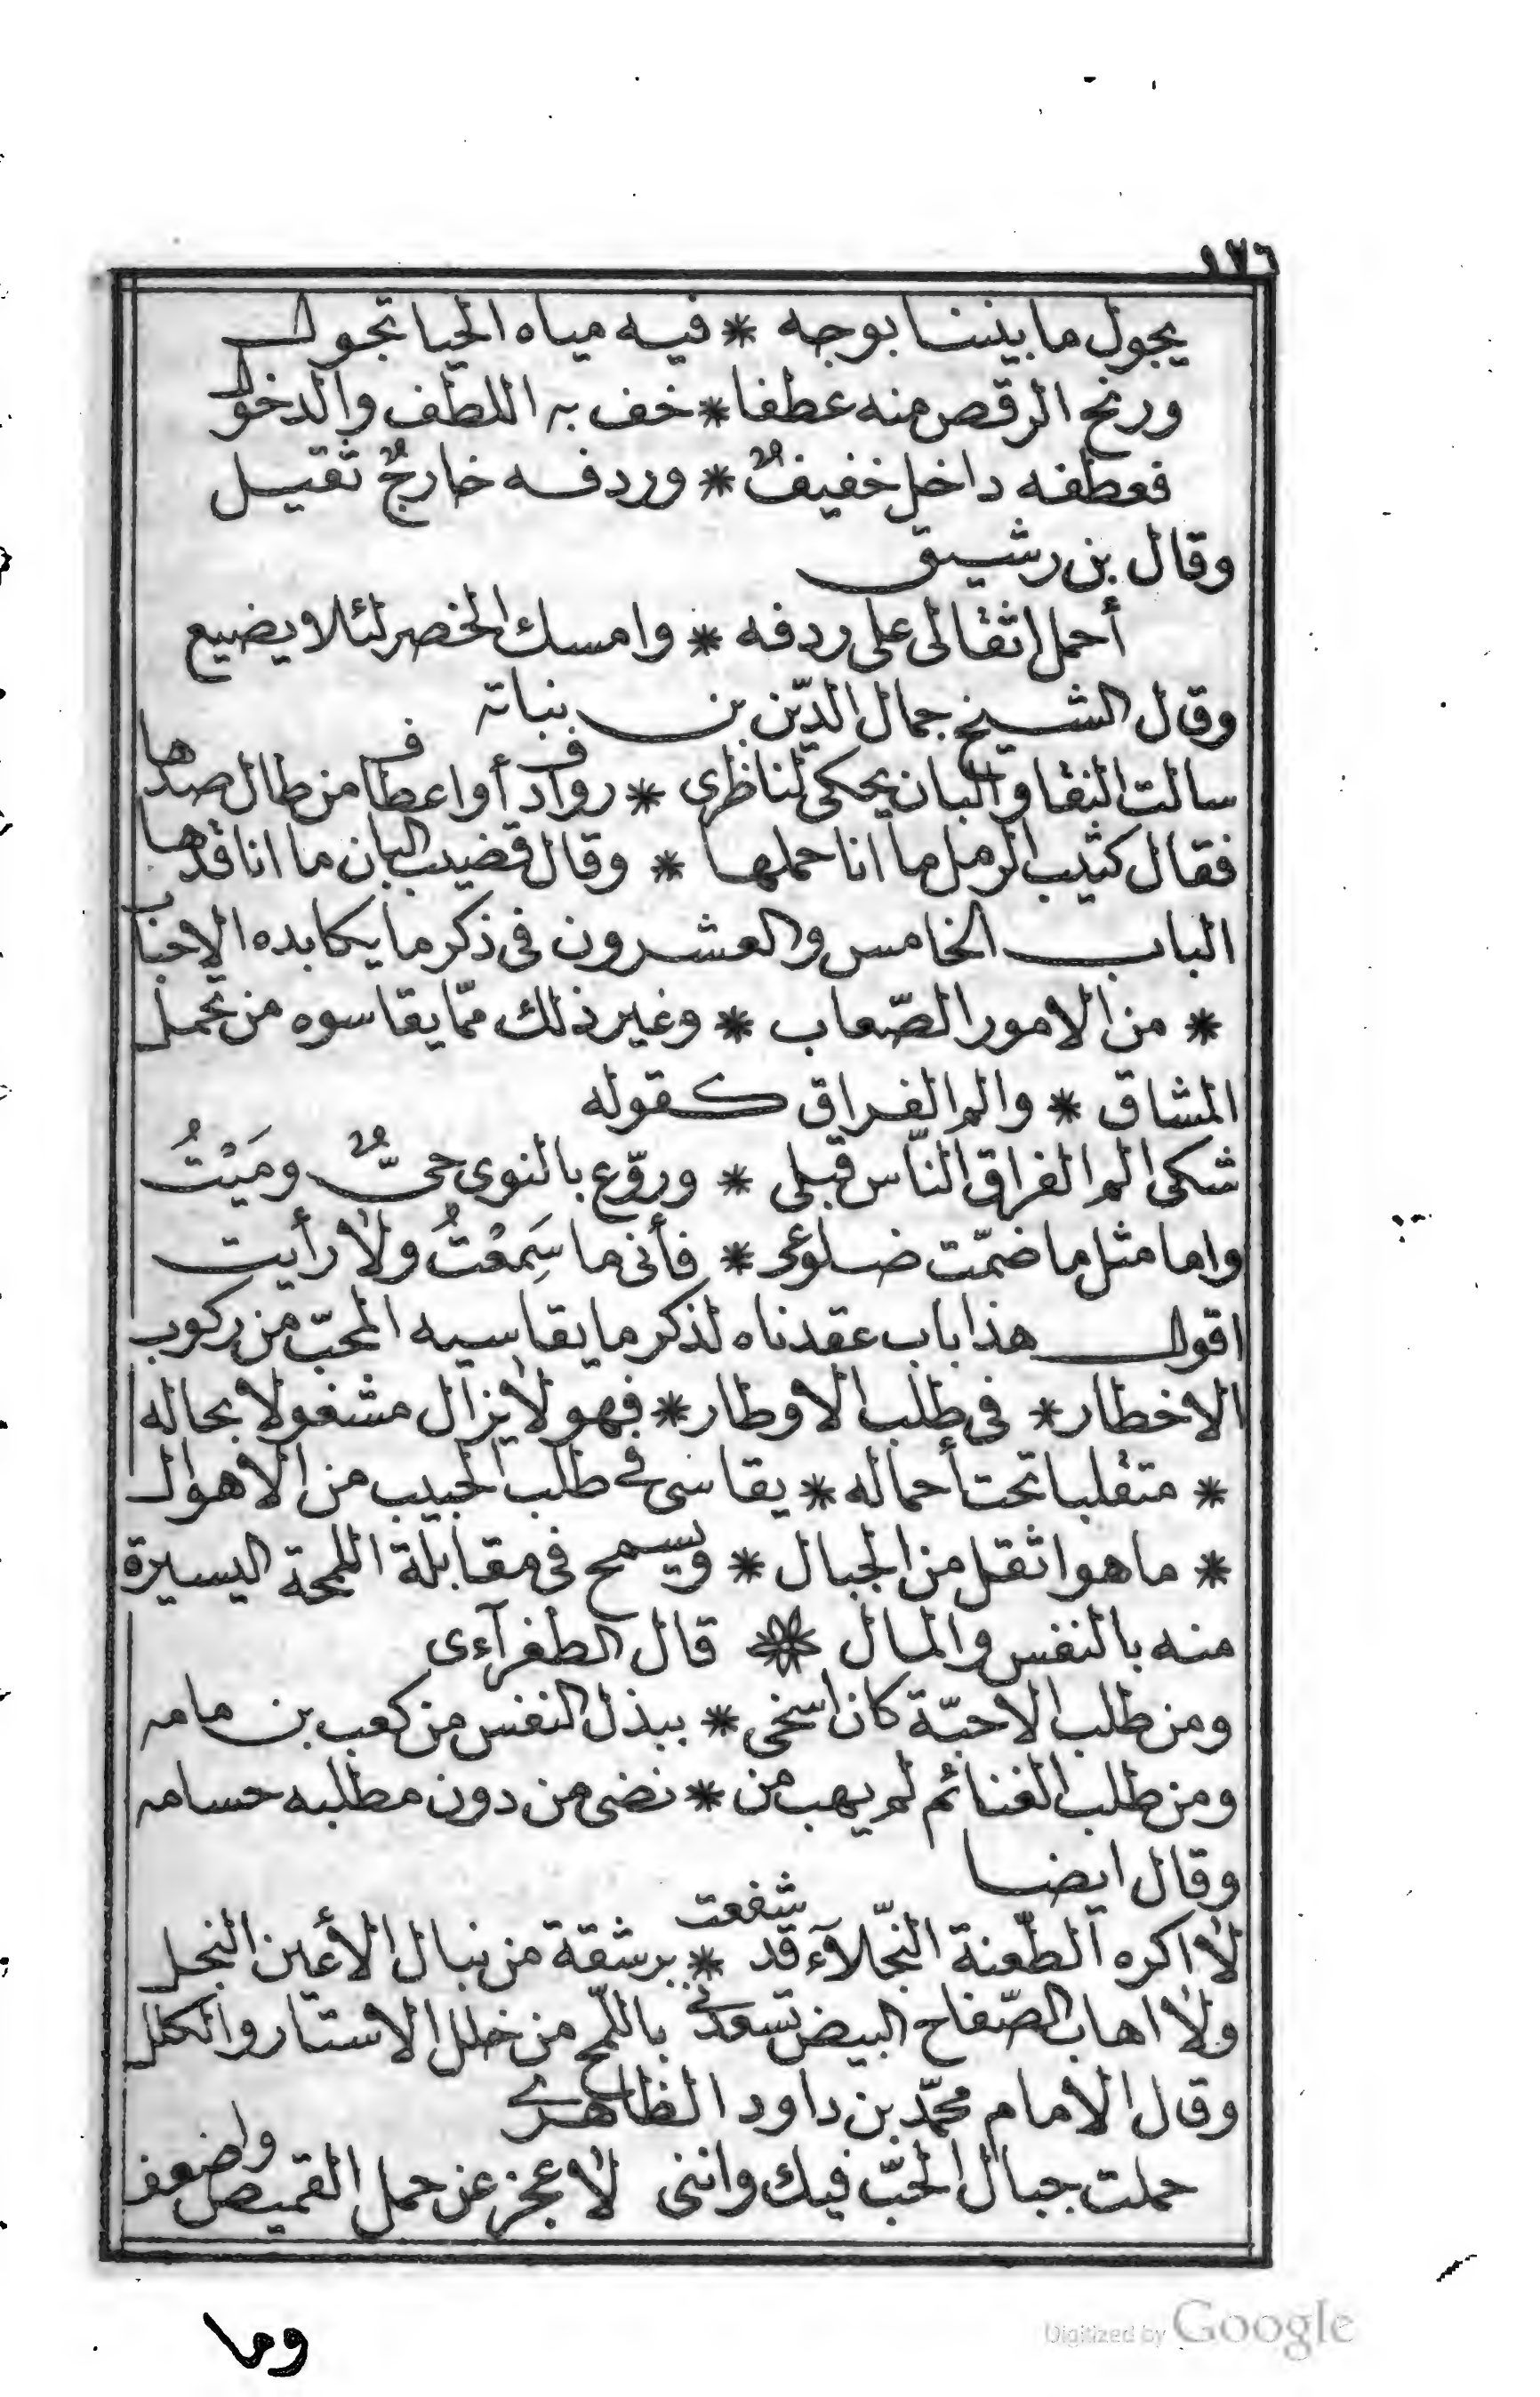 ١٧٦
يجول ما بيننا بوجه * فيه مياه الحيا تجول
ورنح الرقص منه عطفا * خف به اللطف والدخول
فعطفه داخل خفيفٌ * وردفه خارجٌ ثقيل
وقال بن رشيق
أحمل اثقالى على ردفه * وامسك الخصر لئلا يضيع
وقال الشيخ جمال الدّين بن بنباتة
سالت النقا والبان يحكى لناظرى * روادف أو اعطاف من طال صدها
فقال كثيب الرمل ما انا حملها * وقال قضيب البان ما انا قدّها
الباب الخامس والعشرون فى ذكر ما يكابده الاحباب
* من الامور الصّعاب * وغير ذلك ممّا يقاسوه من تحمل
المشاق * والم الفراق كقوله
شكى الم الفراق النّاس قبلى * وروّع بالنوى حىٌّ ومَيْتُ
واما مثل ما ضمّت ضلوعى * فأنى ما سَمِعْتُ ولا رأيت
اقول هذا باب عقدناه لذكر ما يقاسيه المحبّ من ركوب
الاخطار * فى طلب الاوطار * فهو لا يزال مشغولا بحاله
* متقلبا تحت أحماله * يقاسى فى طلب الحبيب من الاهوال
* ما هو اثقل من الجبال * ويسمح فى مقابلة اللمحة اليسيرة
منه بالنفس والمال * قال الطغرآءى
ومن طلب الاحبّة كان اسخى * ببذل النفس من كعب بن مامه
ومن طلب الغنائم لم يهب من * نضى من دون مطلبه حسامه
وقال ايضا
لا اكره الطّعنة النّجلآء قد شفعت * برشقة من نبال الأعين النجل
ولا اهاب الصّفاح البيض تسعدنى باللّمح من خلل الاستار والكلل
وقال الامام محمّد بن داود الظاهرى
حملت جبال الحبّ فيك واننى لاعجز عن حمل القميص واضعف
وما
Digitized by Google